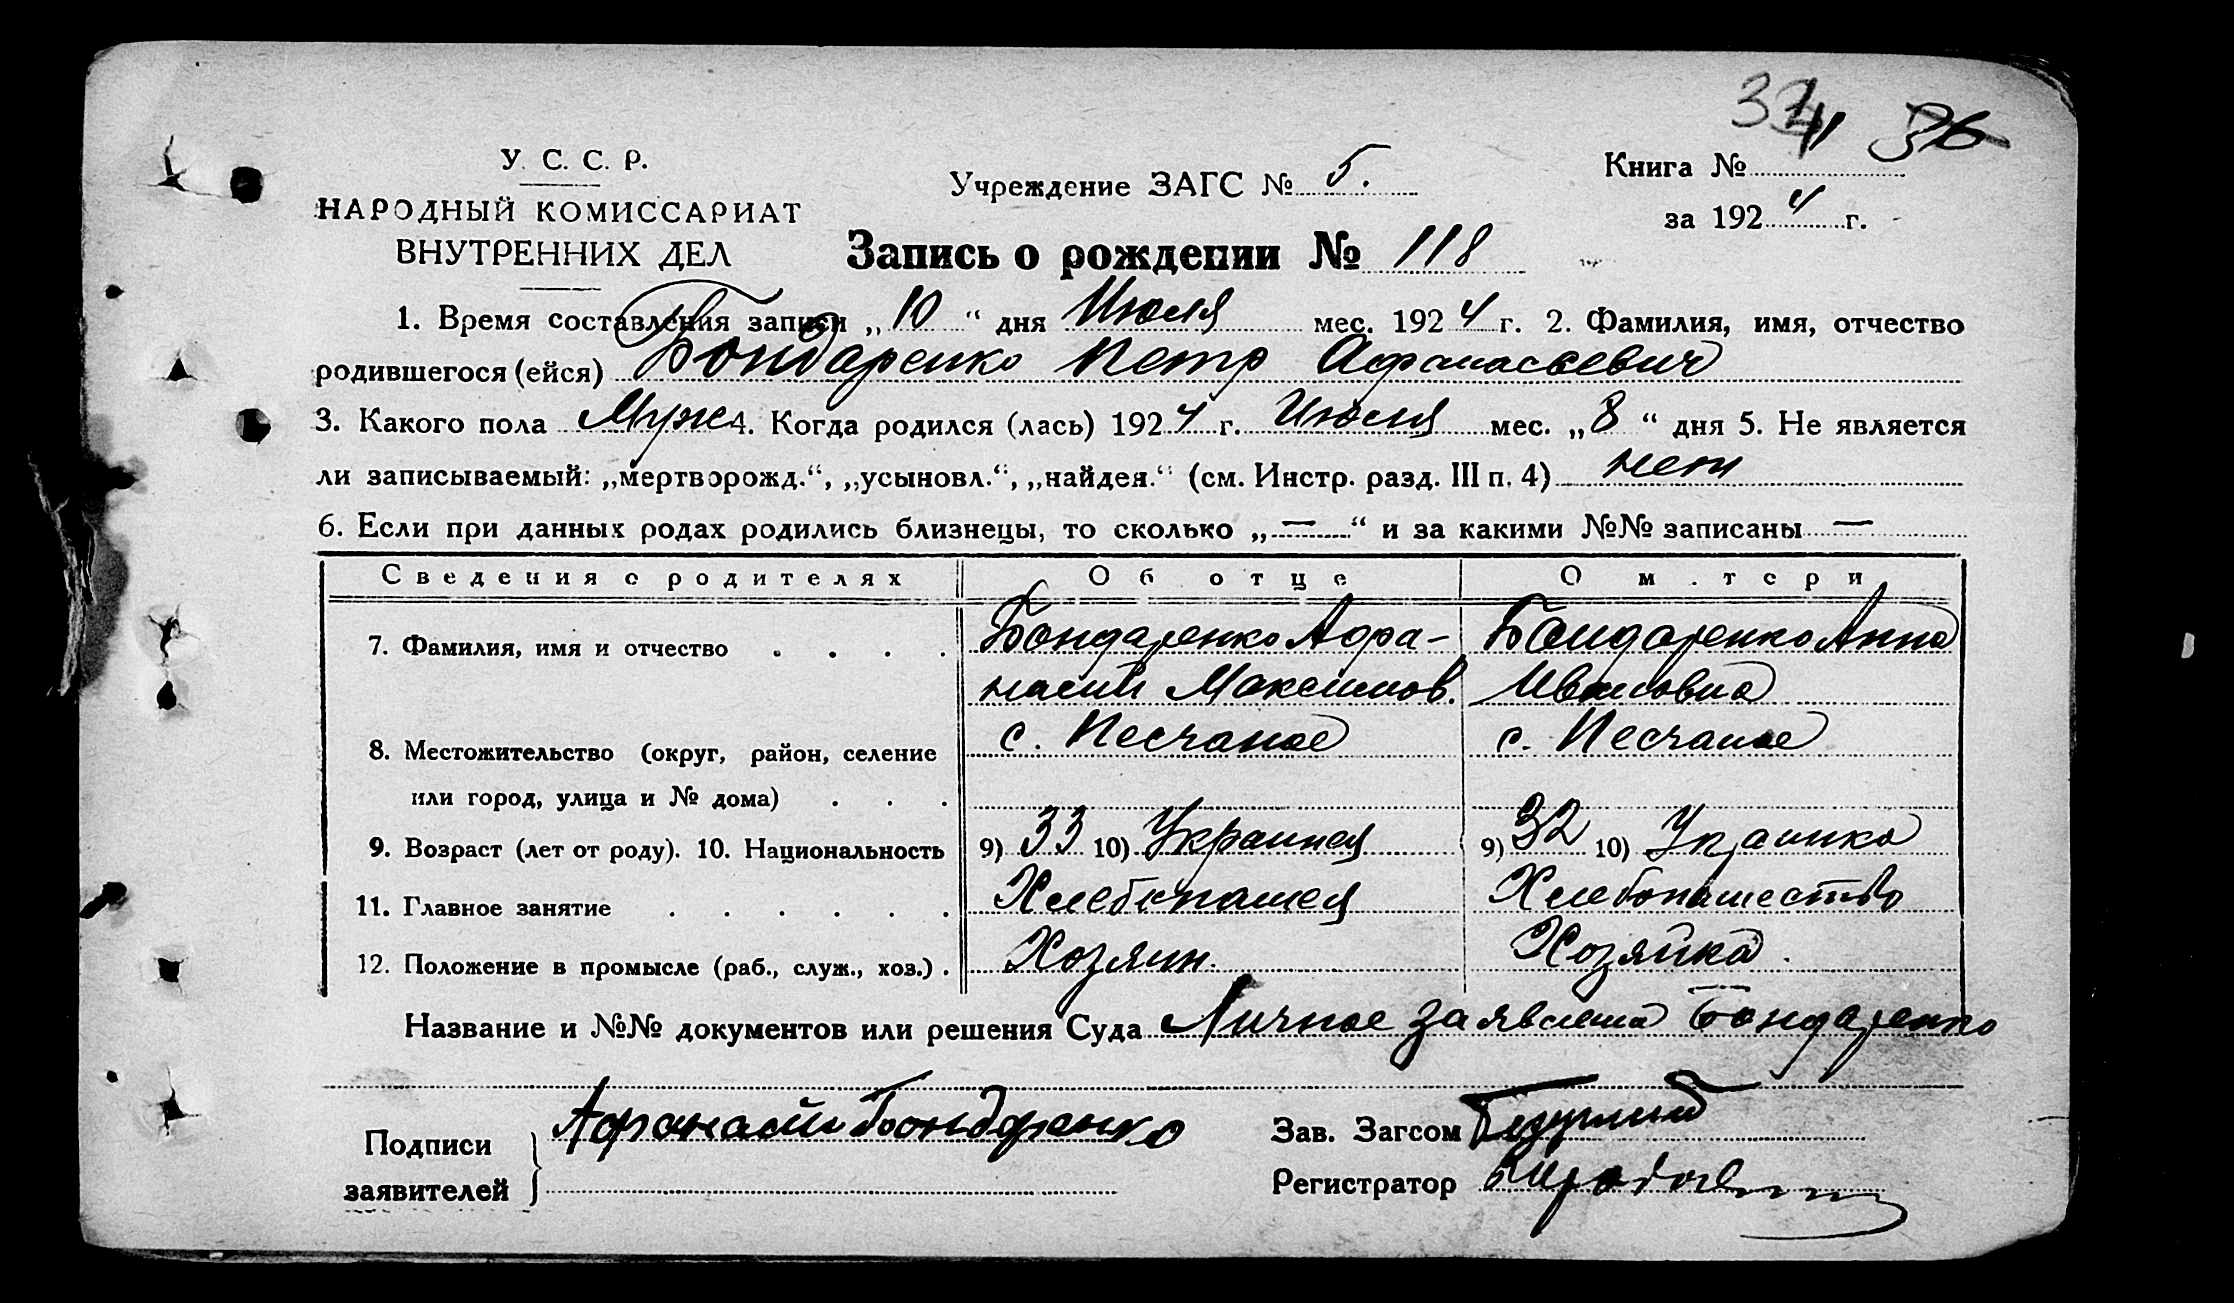 У. С. С. Р.
НАРОДНЫЙ КОМИССАРИАТ
ВНУТРЕННИХ ДЕЛ
Учреждение ЗАГС № 5.
36
Книга №
за 1924 г.
Запись о рождении № 118
1. Время составления записи „10“ дня Июля мес. 1924 г. 2. Фамилия, имя, отчество
родившегося (ейся) Бондаренко Петр Афанасьевич
3. Какого пола Муж 4. Когда родился (лась) 1924 г. Июля мес. „8“ дня 5. Не является
ли записываемый: „мертворожд.“, „усыновл.“, „найден.“ (см. Инстр. разд. III п. 4) нет
6. Если при данных родах родились близнецы, то сколько „—“ и за какими №№ записаны —
Сведения о родителях Об отце О м.тери
7. Фамилия, имя и отчество Бондаренко Афа- Бондаренко Анна
насий Максимов. Ивановна
с. Песчаное с. Песчаное
8. Местожительство (округ, район, селение
или город, улица и № дома)
9. Возраст (лет от роду). 10. Национальность 9) 33 10) Украинец 9) 32 10) Украинка
11. Главное занятие Хлебопашец Хлебопашество
12. Положение в промысле (раб., служ., хоз.) Хозяин. Хозяйка.
Название и №№ документов или решения Суда Личное заявление Бондаренко
Подписи Афанасий Бондаренко Зав. Загсом
заявителей Регистратор